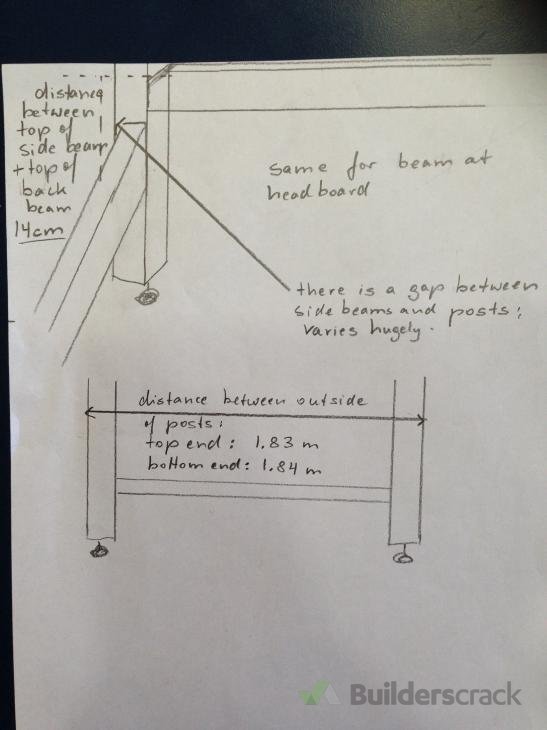 distance
between
top of
side beam
+ top of
back
beam
14cm
same for beam at
headboard
there is a gap between
side beams and posts;
varies hugely.
distance between outside
of posts:
top end: 1.83 m
bottom end: 1.84 m
Builderscrack